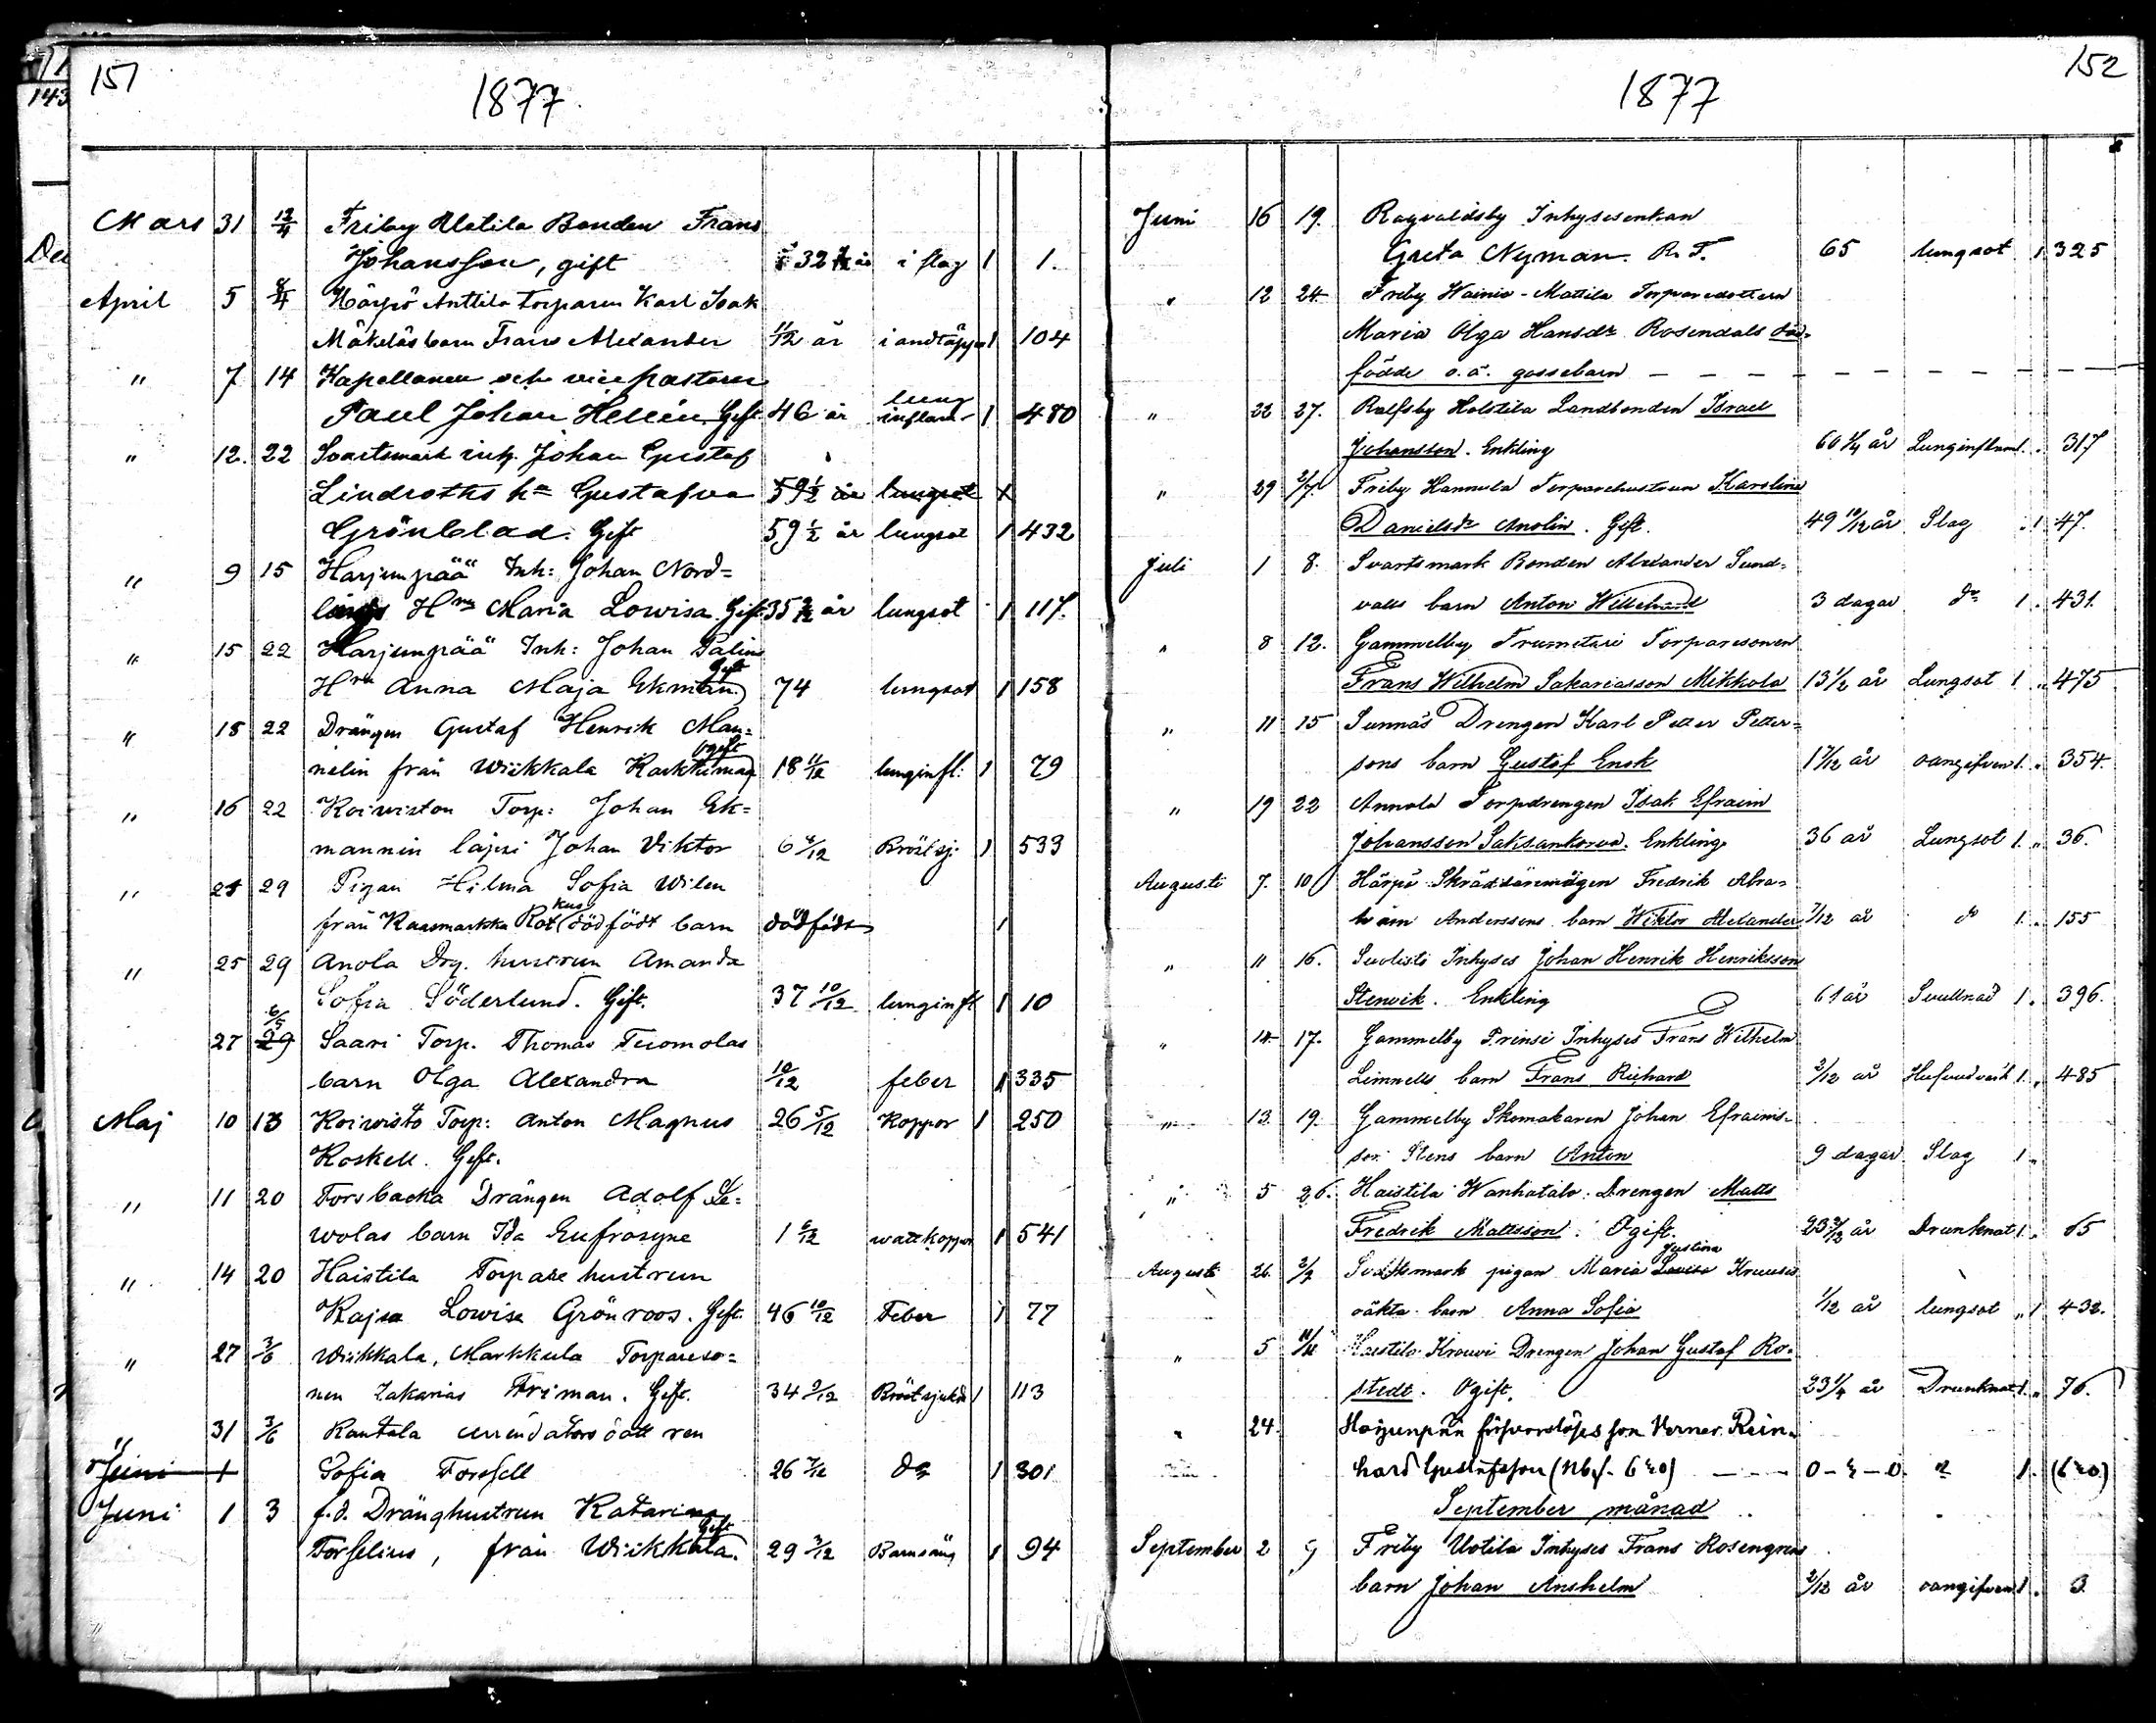 151
1877
Mars 31 12/4 Friby Uotila Bonden Frans
Johansson, gift 32 år i slag 1 1.
April 5 8/4 Härpö Anttila Torparen Karl Isak
Mäkeläs barn Frans Alexander 11/12 år i andtäppa 1 104
" 7 14 Kapellanen och vice pastoren
Paul Johan Hellén. Gift. 46 år lung inflam 1 480
" 12. 22 Svartsmark inh. Johan Gustaf
Lindroths hu Gustafva 59 1/2 år lungsot
Grönblad. Gift 59 1/2 år lungsot 1 432
" 9 15 Harjunpää Inh: Johan Nord=
Hru Maria Lowisa. Gift 35 år lungsot 1 117.
" 15 22 Harjunpää Inh: Johan Palins
Hru Anna Maja Ekman Gift 74 lungsot 1 158
" 18 22 Drängen Gustaf Henrik Man=
nelin från Wiikkala Ogift 18 11/12 lunginfl: 1 79
" 16 22 Koiwiston Torp: Johan Ek=
mannin lapsi Johan Viktor 6 /12 Bröstsj. 1 533
" 29 Pigan Hilma Sofia Wilen
från Kaasmarkka Rotkus dödfödt barn dödfödt 1
" 25 29 Anola Drg. hustrun Amanda
Sofia Söderlund. Gift. 37 10/12 lunginfl 1 10
27 29 6/5 Saari Torp. Thomas Tuomolas
barn Olga Alexandra 10/12 feber 1 335
Maj 10 13 Koiwisto Torp: Anton Magnus 26 5/12 Koppor 1 250
Koskell. Gift.
" 11 20 Forsbacka Drängen Adolf Le=
wolas barn Ida Eufrosyne 1 6/12 wattkoppor 1 541
" 14 20 Haistila Torpare hustrun
Kajsa Lowisa Grönroos. Gift. 46 10/12 Feber 1 77
" 27 3/6 Wiikkala, Markkula Torpareso=
nen Zakarias Friman. Gift. 34 9/12 Bröstsjukd 1 113
" 31 3/6 Rantala arrendators dottren
Juni 1 Sofia Forssell 26 7/12 do 1 301
Juni 1 3 f.d. Dränghustrun Katarina
Forselius, från Wiikkala. Gift 29 3/12 Barnsäng 1 94
152
1877
Juni 16 19. Ragvaldsby Inhysesenkan
Greta Nyman. R. F. 65 lungsot 1. 325
" 12 24. Friby Wainio-Mattila Torparedottern
Maria Olga Hansdr Rosendals död=
födde o.ä. gossebarn
" 22 27. Ralfsby Holstila Landbonden Israel
Johansson. Enkling 60 1/4 år Lunginflam 1. 317
" 29 2/7. Friby Hannula Torparehustrun Karolina
Danielsdr Anolin. Gift. 49 10/12 år Slag 1 47.
Juli 1 8. Svartsmark Bonden Alexander Sund=
valls barn Anton Willehard 3 dagar do 1. 431.
" 8 12. Gammelby Trumetari Torparesonen
Frans Wilhelm Sakariasson Mikkola 13 1/2 år Lungsot 1 " 475
" 11 15 Sunnäs Drengen Karl Petter Petter=
sons barn Gustaf Enok 1 7/12 år oangifven 1. " 354.
" 19 22 Annola Torpdrengen Isak Efraim
Johansson Saksankorva. Enkling 36 år Lungsot 1. " 36.
Augusti 7. 10 Härpö Skräddaremågen Fredrik Abra=
ham Anderssons barn Wiktor Alexander 7/12 år do 1. 155
" 11 16. Suolisto Inhyses Johan Henrik Henriksson
Stenvik. Enkling 61 år Svullnad 1. 396.
" 14. 17. Gammelby Prinsi Inhyses Frans Wilhelm
Linnells barn Frans Richard 2/12 år Hufvudvärk 1. 485
" 13. 19. Gammelby Skomakaren Johan Efraims=
son Stens barn Anton 9 dagar Slag 1 "
" 5 26. Haistila Wanhatalo. Drengen Matts
Fredrik Mattsson. Ogift. 23 /12 år Drunknat 1. 65
Augusti 26. 2/9 Svartsmark pigan Maria Lovisa Justina Kruusis
oäkta barn Anna Sofia 1/12 år lungsot " 1 432.
" 5 Haistila Krouvi Drengen Johan Gustaf Ro=
stedt. Ogift. 23 1/4 år Drunknat 1. " 76.
" 24. Harjunpää son Verner Rein=
hard Gustafsson 1.
September månad
September 2 9 Friby Uotila Inhyses Frans Rosengrens
barn Johan Anshelm 2/12 år oangifven 1. 3.